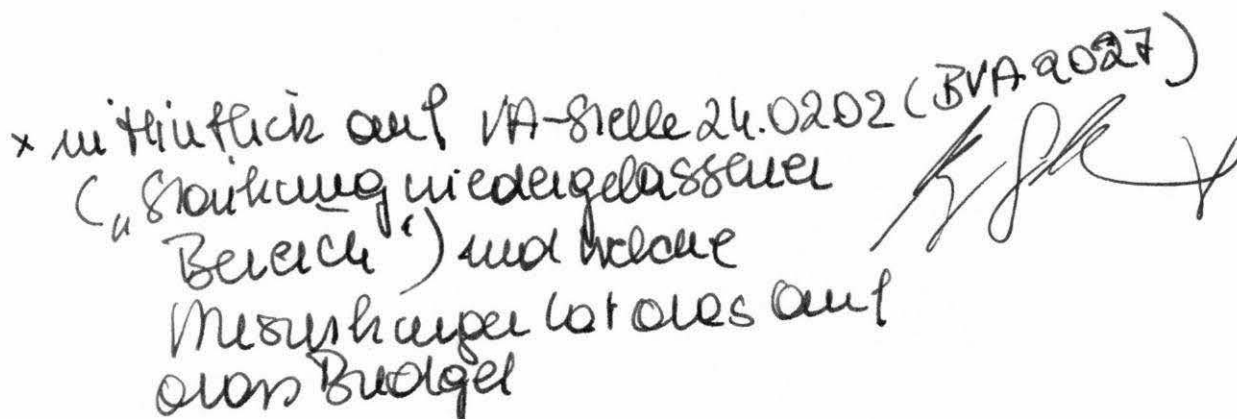 × im Hinblick auf VA-Stelle 24.0202 (BVA 2027)
(„Stärkung niedergelassener
Bereich“) und welche
Auswirkungen hat das auf
das Budget